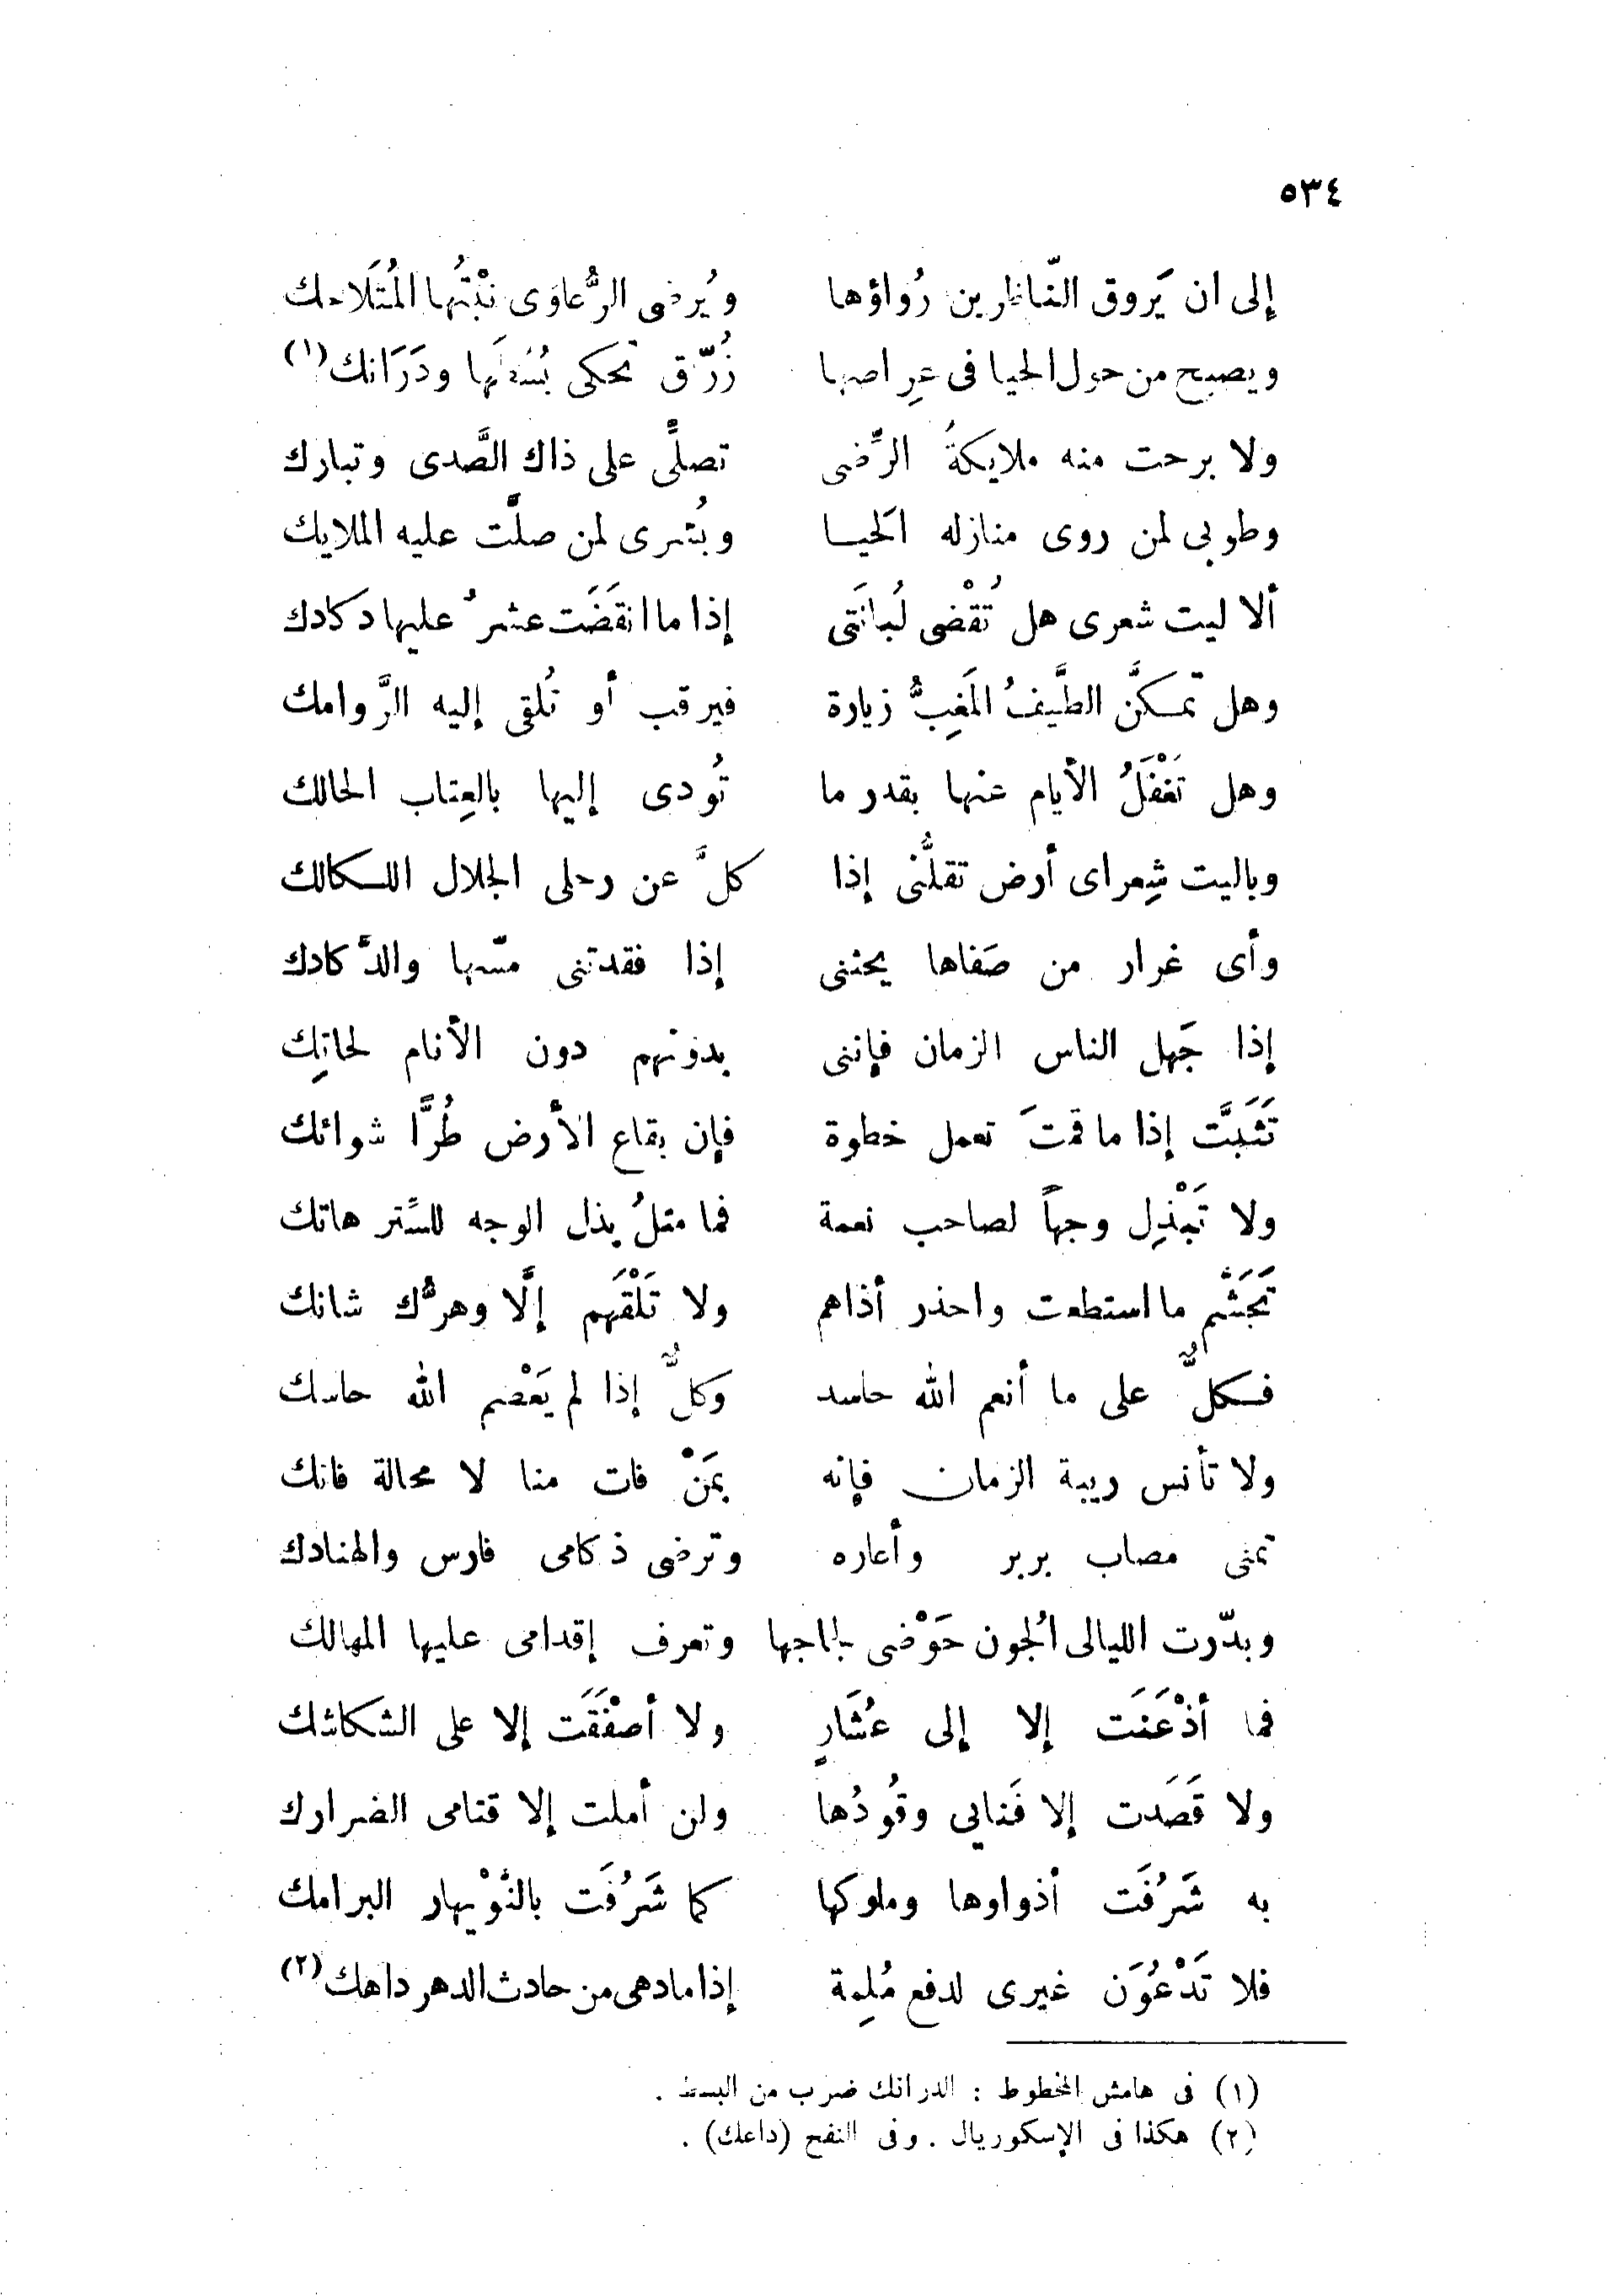 ٥٣٤
إلى ان يَروق النّاظرين رُواؤها ويُرضى الرُّعاوَى نبْتُها المُتَلَاحك
ويصبح من حول الحيا فى عِراصها زُرّق تحكى بُسْطَها ودَرَانك (١)
ولا برحت منه ملايكةُ الرِّضى تصلًى على ذاك الصَّدى وتبارك
وطوبى لمن روى منازله الَحيا وبُشرى لمن صلَّت عليه الملايك
ألا ليت شعرى هل تُقْضى لُبانَتى إذا ما انقَضَت عشرُ عليها دكادك
وهل تمكنَّ الطَّيفُ المَغِبُّ زيارة فيرقب أو تُلقى إليه الرَّوامك
وهل تَغْفَلُ الأيام عنها بقدر ما تُودى إليها بالعِتاب الحالك
وباليت شِعراى أرض تقلُّنى إذا كلَّ عن رحلى الجلال اللكالك
وأى غرار من صَفاها يحثنى إذا فقدتنى مسّها والدَّكادك
إذا جَهل الناس الزمان فإننى بدونهم دون الأنام لحاتِك
تَثَبَّت إذا ما قمتَ تعمل خطوة فإن بقاع الأرض طُرًّا شوائك
ولا تَبْذِل وجهاً لصاحب نعمة فما مثلُ بذل الوجه للسِّتر هاتك
تَجَشَّم ما استطعت واحذر أذاهم ولا تَلْقَهم إلَّا وهرُّك شانك
فكلٌّ على ما أنعم الله حاسد وكلٌّ إذا لم يَعْصم الله حاسك
ولا تأنس ريبة الزمان فإنه بمَنْ فات منا لا محالة فانك
تمنى مصاب بربر وأعاره وترضى ذكامى فارس والهنادك
وبدّرت الليالى الُجون حَوْضى لجاجها وتعرف إقدامى عليها المهالك
فما أذْعَنَت إلا إلى عُشَارٍ ولا أصْفَقَت إلا على الشكاشك
ولا قَصَدت إلا فَنايى وقُودُها ولن أملت إلا قتامى الضرارك
به شَرُفَت أذواوها وملوكها كما شَرُفَت بالنُّوْبهار البرامك
فلا تَدْعُوَن غيرى لدفع مُلِمة إذا مادهى من حادث الدهر داهك (٢)
(١) فى هامش المخطوط : الدرانك ضرب من البسط .
(٢) هكذا فى الإسكوريال . وفى النفح (داعك) .